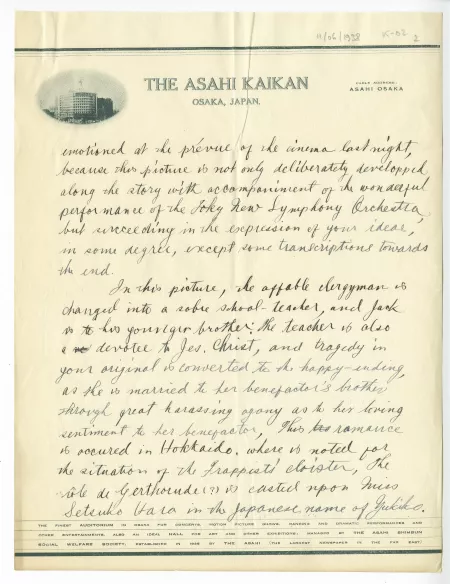 11/06/1938 K-02 2
THE ASAHI KAIKAN
OSAKA, JAPAN.
CABLE ADDRESS:
ASAHI OSAKA
emotioned at the prévue of the cinema last night,
because this picture is not only deliberately developped
along the story with accompaniment of the wonderful
performance of the Toky New Symphony Orchestra,
but succeeding in the expression of your ideas,
in some degree, except some transcriptions towards
the end.
In this picture, the affable clergyman is
changed into a sobre school-teacher, and Jack
is to his younger brother: the teacher is also
a devotee to Jes. Christ, and tragedy in
your original is converted to the happy-ending,
as she is married to her benefactor's brother
through great harassing agony as to her loving
sentiment to her benefactor, This romance
is occured in Hokkaido, where is noted for
the situation of the Trappists cloister, The
rôle de Gerthrude(?) is casted upon Miss
Setsuko Hara in the Japanese name of Yukiko.
THE FINEST AUDITORIUM IN OSAKA FOR CONCERTS, MOTION PICTURE SHOWS, DANCING AND DRAMATIC PERFORMANCES AND
OTHER ENTERTAINMENTS. ALSO AN IDEAL HALL FOR ART AND OTHER EXHIBITIONS; MANAGED BY THE ASAHI SHIMBUN
SOCIAL WELFARE SOCIETY, ESTABLISHED IN 1928 BY THE ASAHI (THE LARGEST NEWSPAPER IN THE FAR EAST)